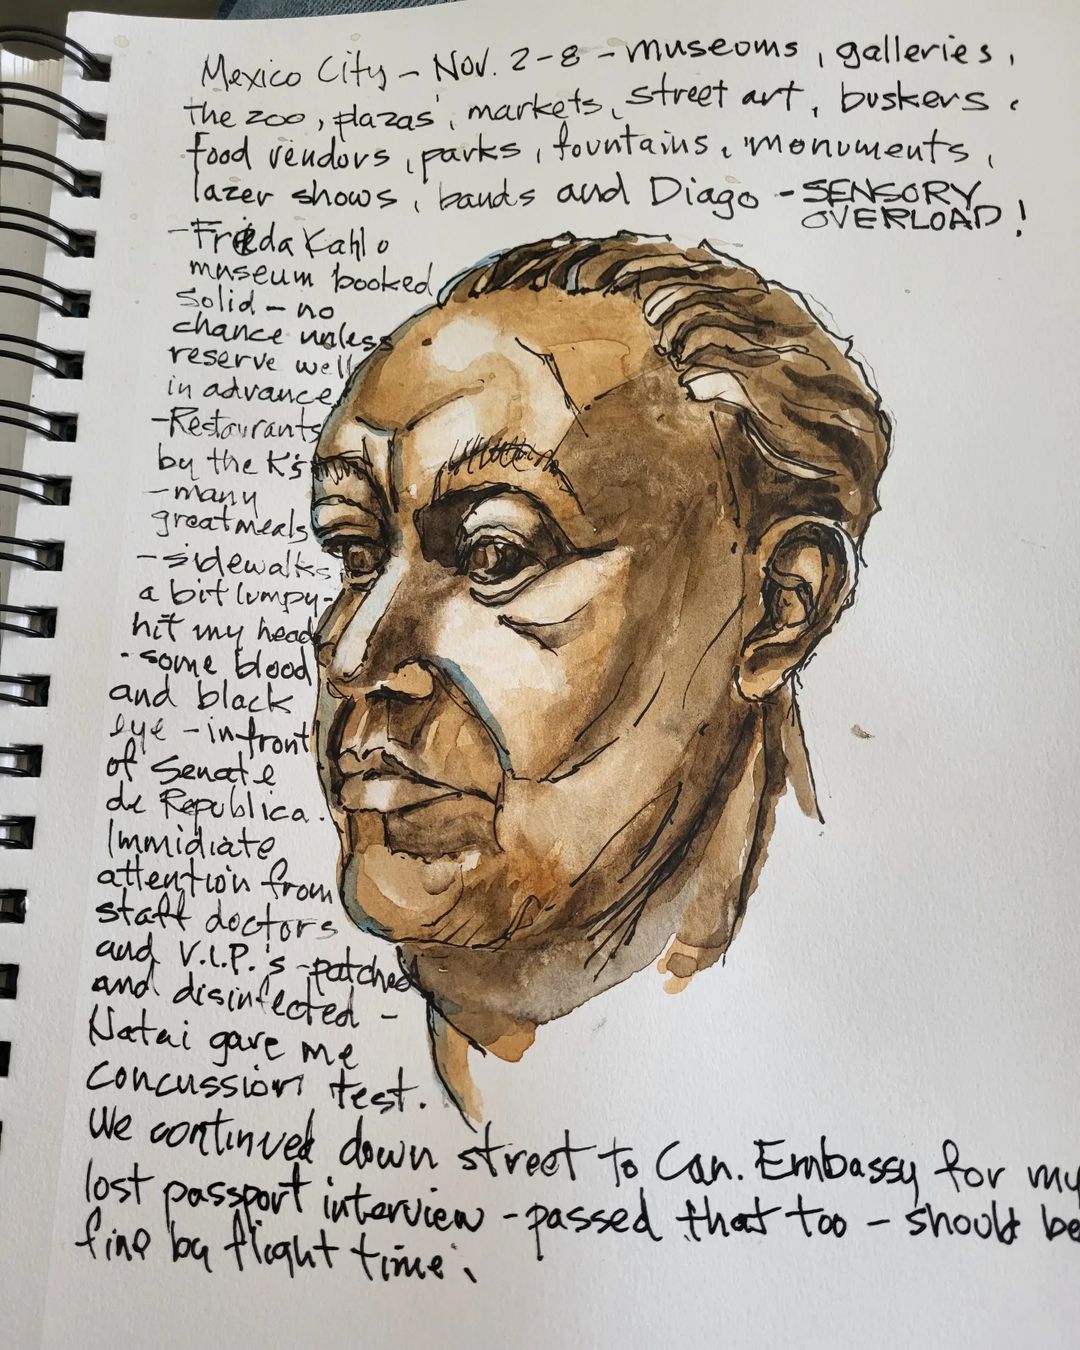 Mexico City – Nov. 2-8 – museums, galleries,
the zoo, plazas, markets, street art, buskers,
food vendors, parks, fountains, monuments,
lazer shows, bands and Diago – SENSORY
OVERLOAD!
– Frida Kahlo
museum booked
solid – no
chance unless
reserve well
in advance
– Restaurants
by the K's
– many
great meals
– sidewalks
a bit lumpy –
hit my head
- some blood
and black
eye – in front
of Senate
de Republica.
Immidiate
attention from
staff doctors
and V.I.P.'s – patched
and disinfected –
Natai gave me
concussion test.
We continued down street to Can. Embassy for my
lost passport interview – passed that too – should be
fine by flight time.